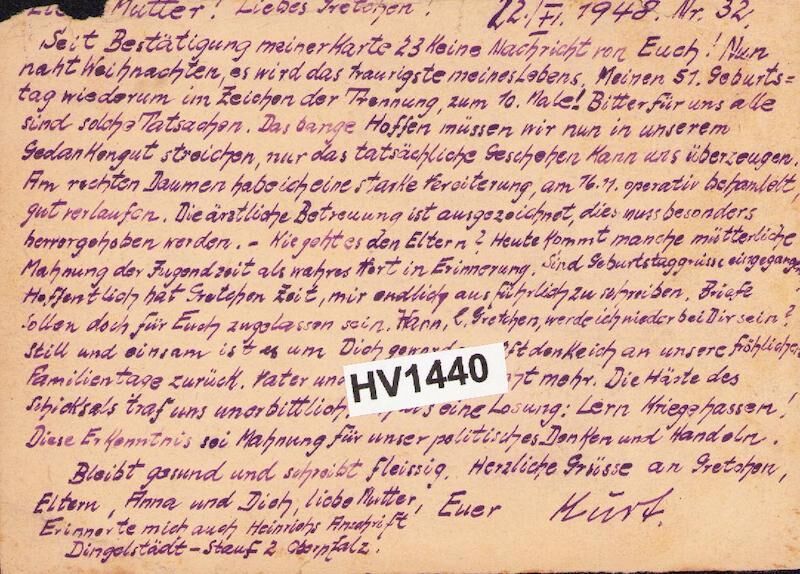 Liebe Mutter! Liebes Gretchen! 22./XI. 1948. Nr. 32.
Seit Bestätigung meiner Karte 23 keine Nachricht von Euch! Nun
naht Weihnachten, es wird das traurigste meines Lebens. Meinen 51. Geburts=
tag wiederum im Zeichen der Trennung, zum 10. Male! Bitter für uns alle
sind solche Tatsachen. Das bange Hoffen müssen wir nun in unserem
Gedankengut streichen, nur das tatsächliche Geschehen kann uns überzeugen.
Am rechten Daumen habe ich eine starke Vereiterung, am 16.11. operativ behandelt,
gut verlaufen. Die ärztliche Betreuung ist ausgezeichnet, dies muss besonders
hervorgehoben werden. – Wie geht es den Eltern? Heute kommt manche mütterliche
Mahnung der Jugendzeit als wahres Wort in Erinnerung. Sind Geburtstaggrüsse eingegangen?
Hoffentlich hat Gretchen Zeit, mir endlich ausführlich zu schreiben. Briefe
sollen doch für Euch zugelassen sein. Wann, l. Gretchen, werde ich wieder bei Dir sein?
Still und einsam ist es um Dich geworden. Oft denke ich an unsere fröhlichen
Familientage zurück. Vater und nicht mehr. Die Härte des
Schicksals traf uns unerbittlich. uns eine Losung: Lern Krieg hassen!
Diese Erkenntnis sei Mahnung für unser politisches Denken und Handeln.
Bleibt gesund und schreibt fleissig. Herzliche Grüsse an Gretchen,
Eltern, Anna und Dich, liebe Mutter, Euer Kurt.
Erinnerte mich auch Heinrichs Anschrift
Dingelstädt – Stauf 2 Oberpfalz.
HV1440